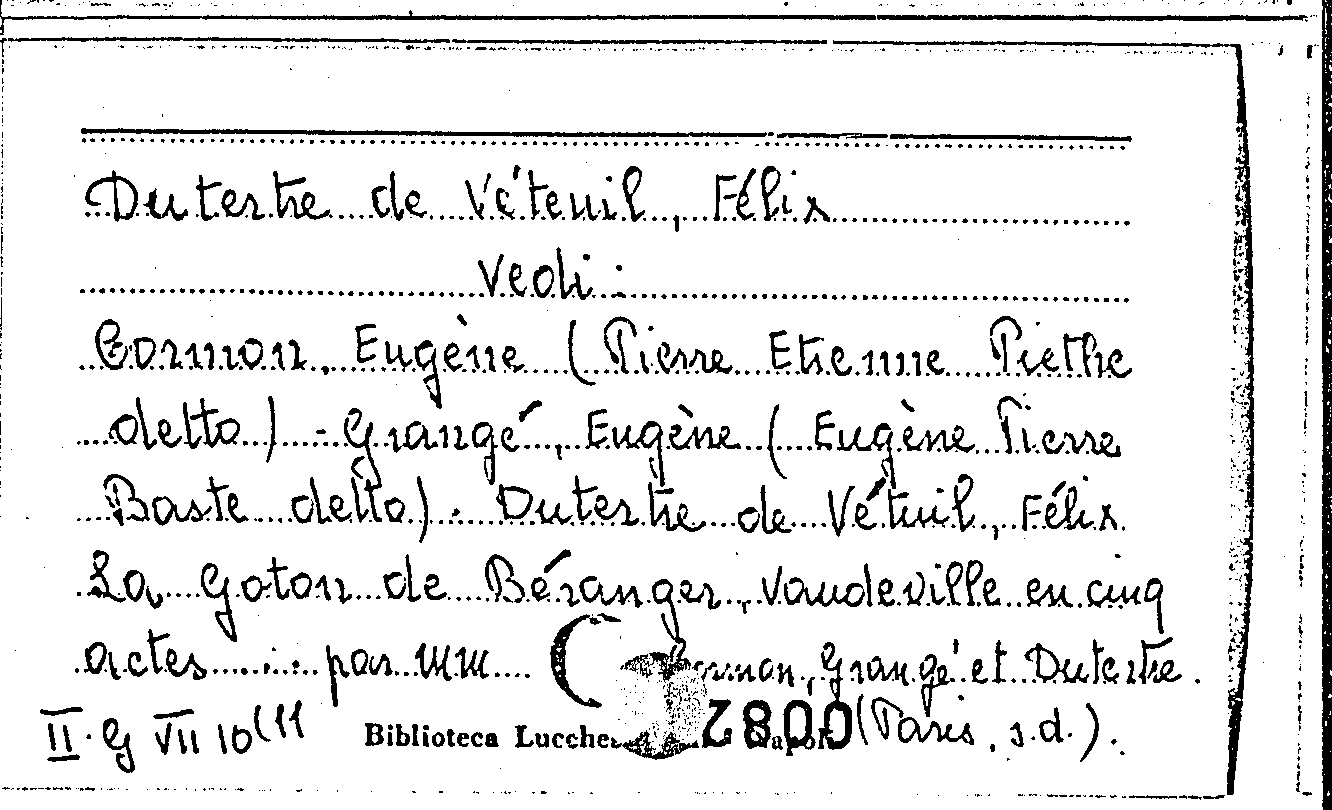 Dutertre de Véteuil, Félix
Vedi:
Cormon, Eugène (Pierre Etienne Piethre
detto) - Grangé, Eugène (Eugène Pierre
Baste detto). Dutertre de Véteuil, Félix
La Goton de Béranger, vaudeville en cinq
actes ..... par MM .... Cormon, Grangé et Dutertre.
II. G VII 10(11
(Paris, s.d.).
Biblioteca
0082